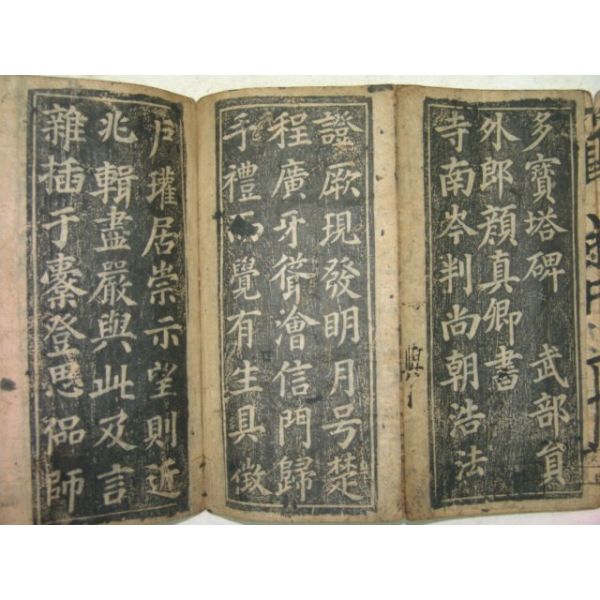 多寶塔碑 武部員
外郎顔真卿書
寺南岑判尚朝浩法
證厥現發明月号楚
程廣牙聳澮信門歸
手禮而覺有生具徵
戶瓘居崇示堂則近
兆輯盡嚴與此及言
雜插于橐登思師